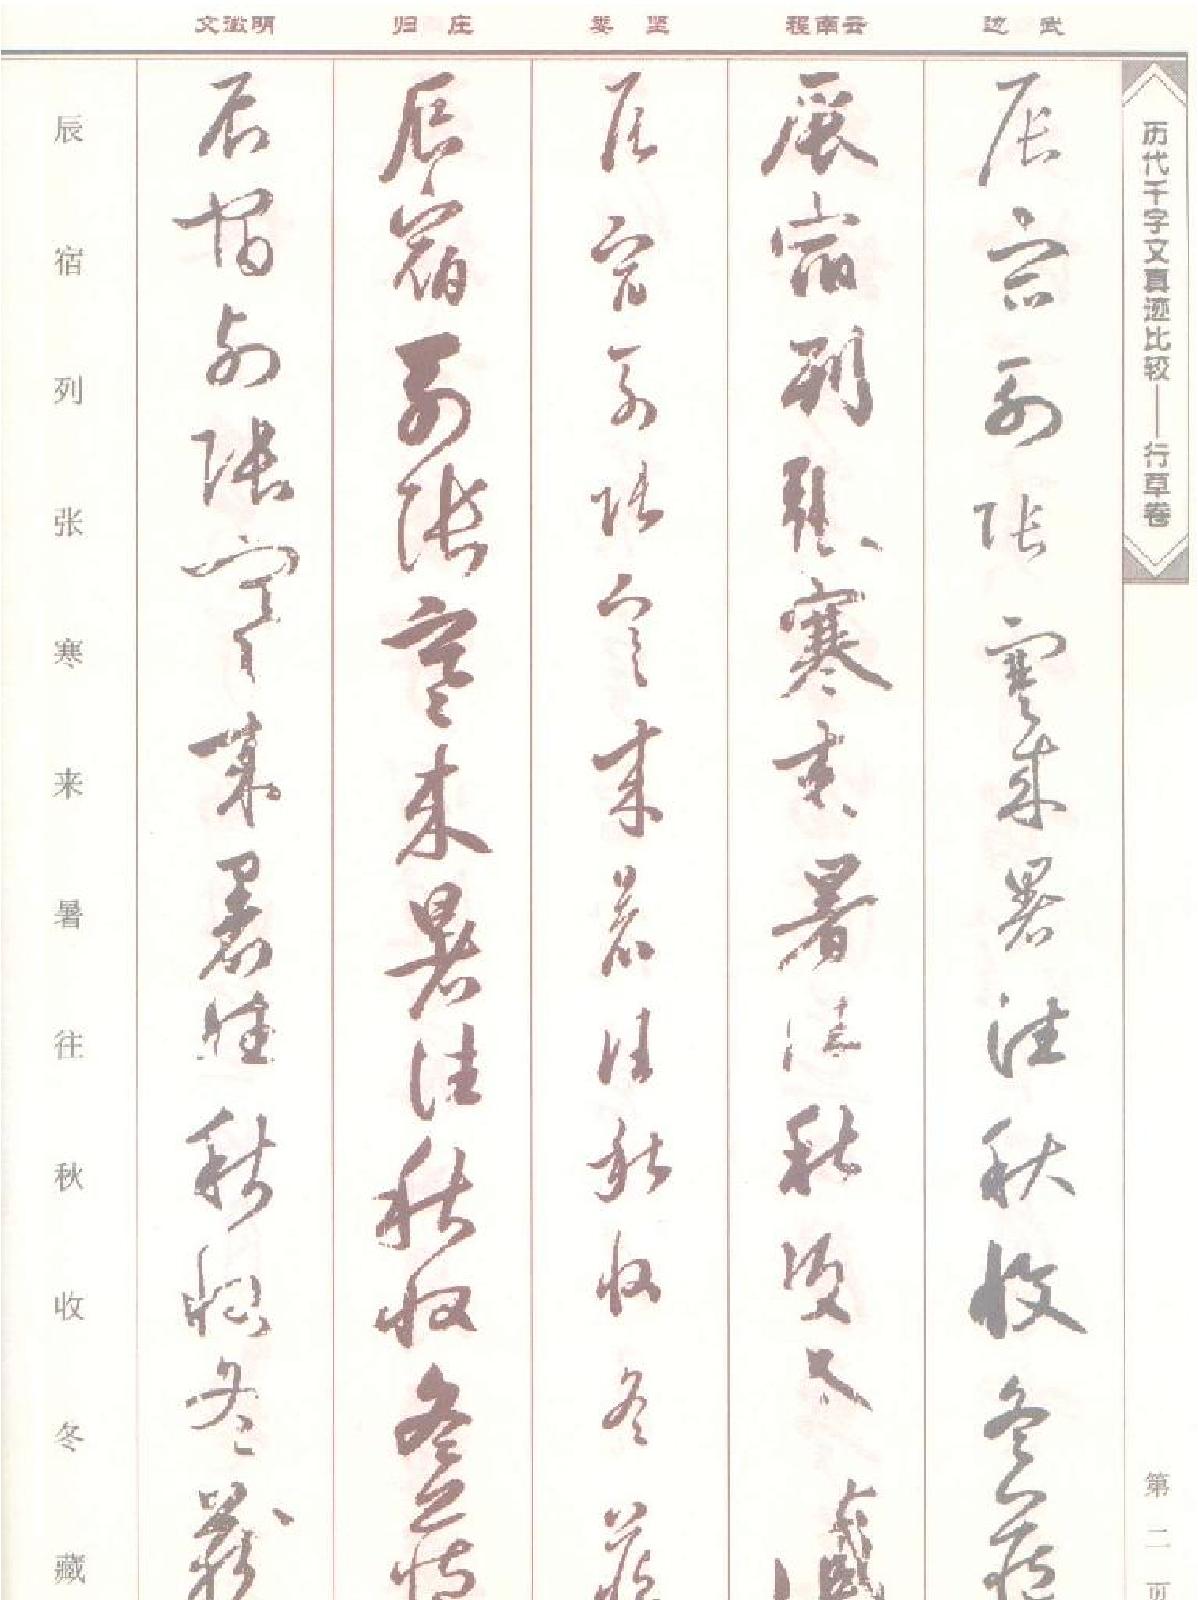 历代千字文真迹比较——行草卷
第二页
边武
辰宿列張寒來暑往秋收冬藏
程南云
辰宿列張寒來暑往秋收冬藏
娄坚
辰宿列張寒來暑往秋收冬藏
归庄
辰宿列張寒來暑往秋收冬藏
文徵明
辰宿列張寒來暑往秋收冬藏
辰宿列张寒来暑往秋收冬藏